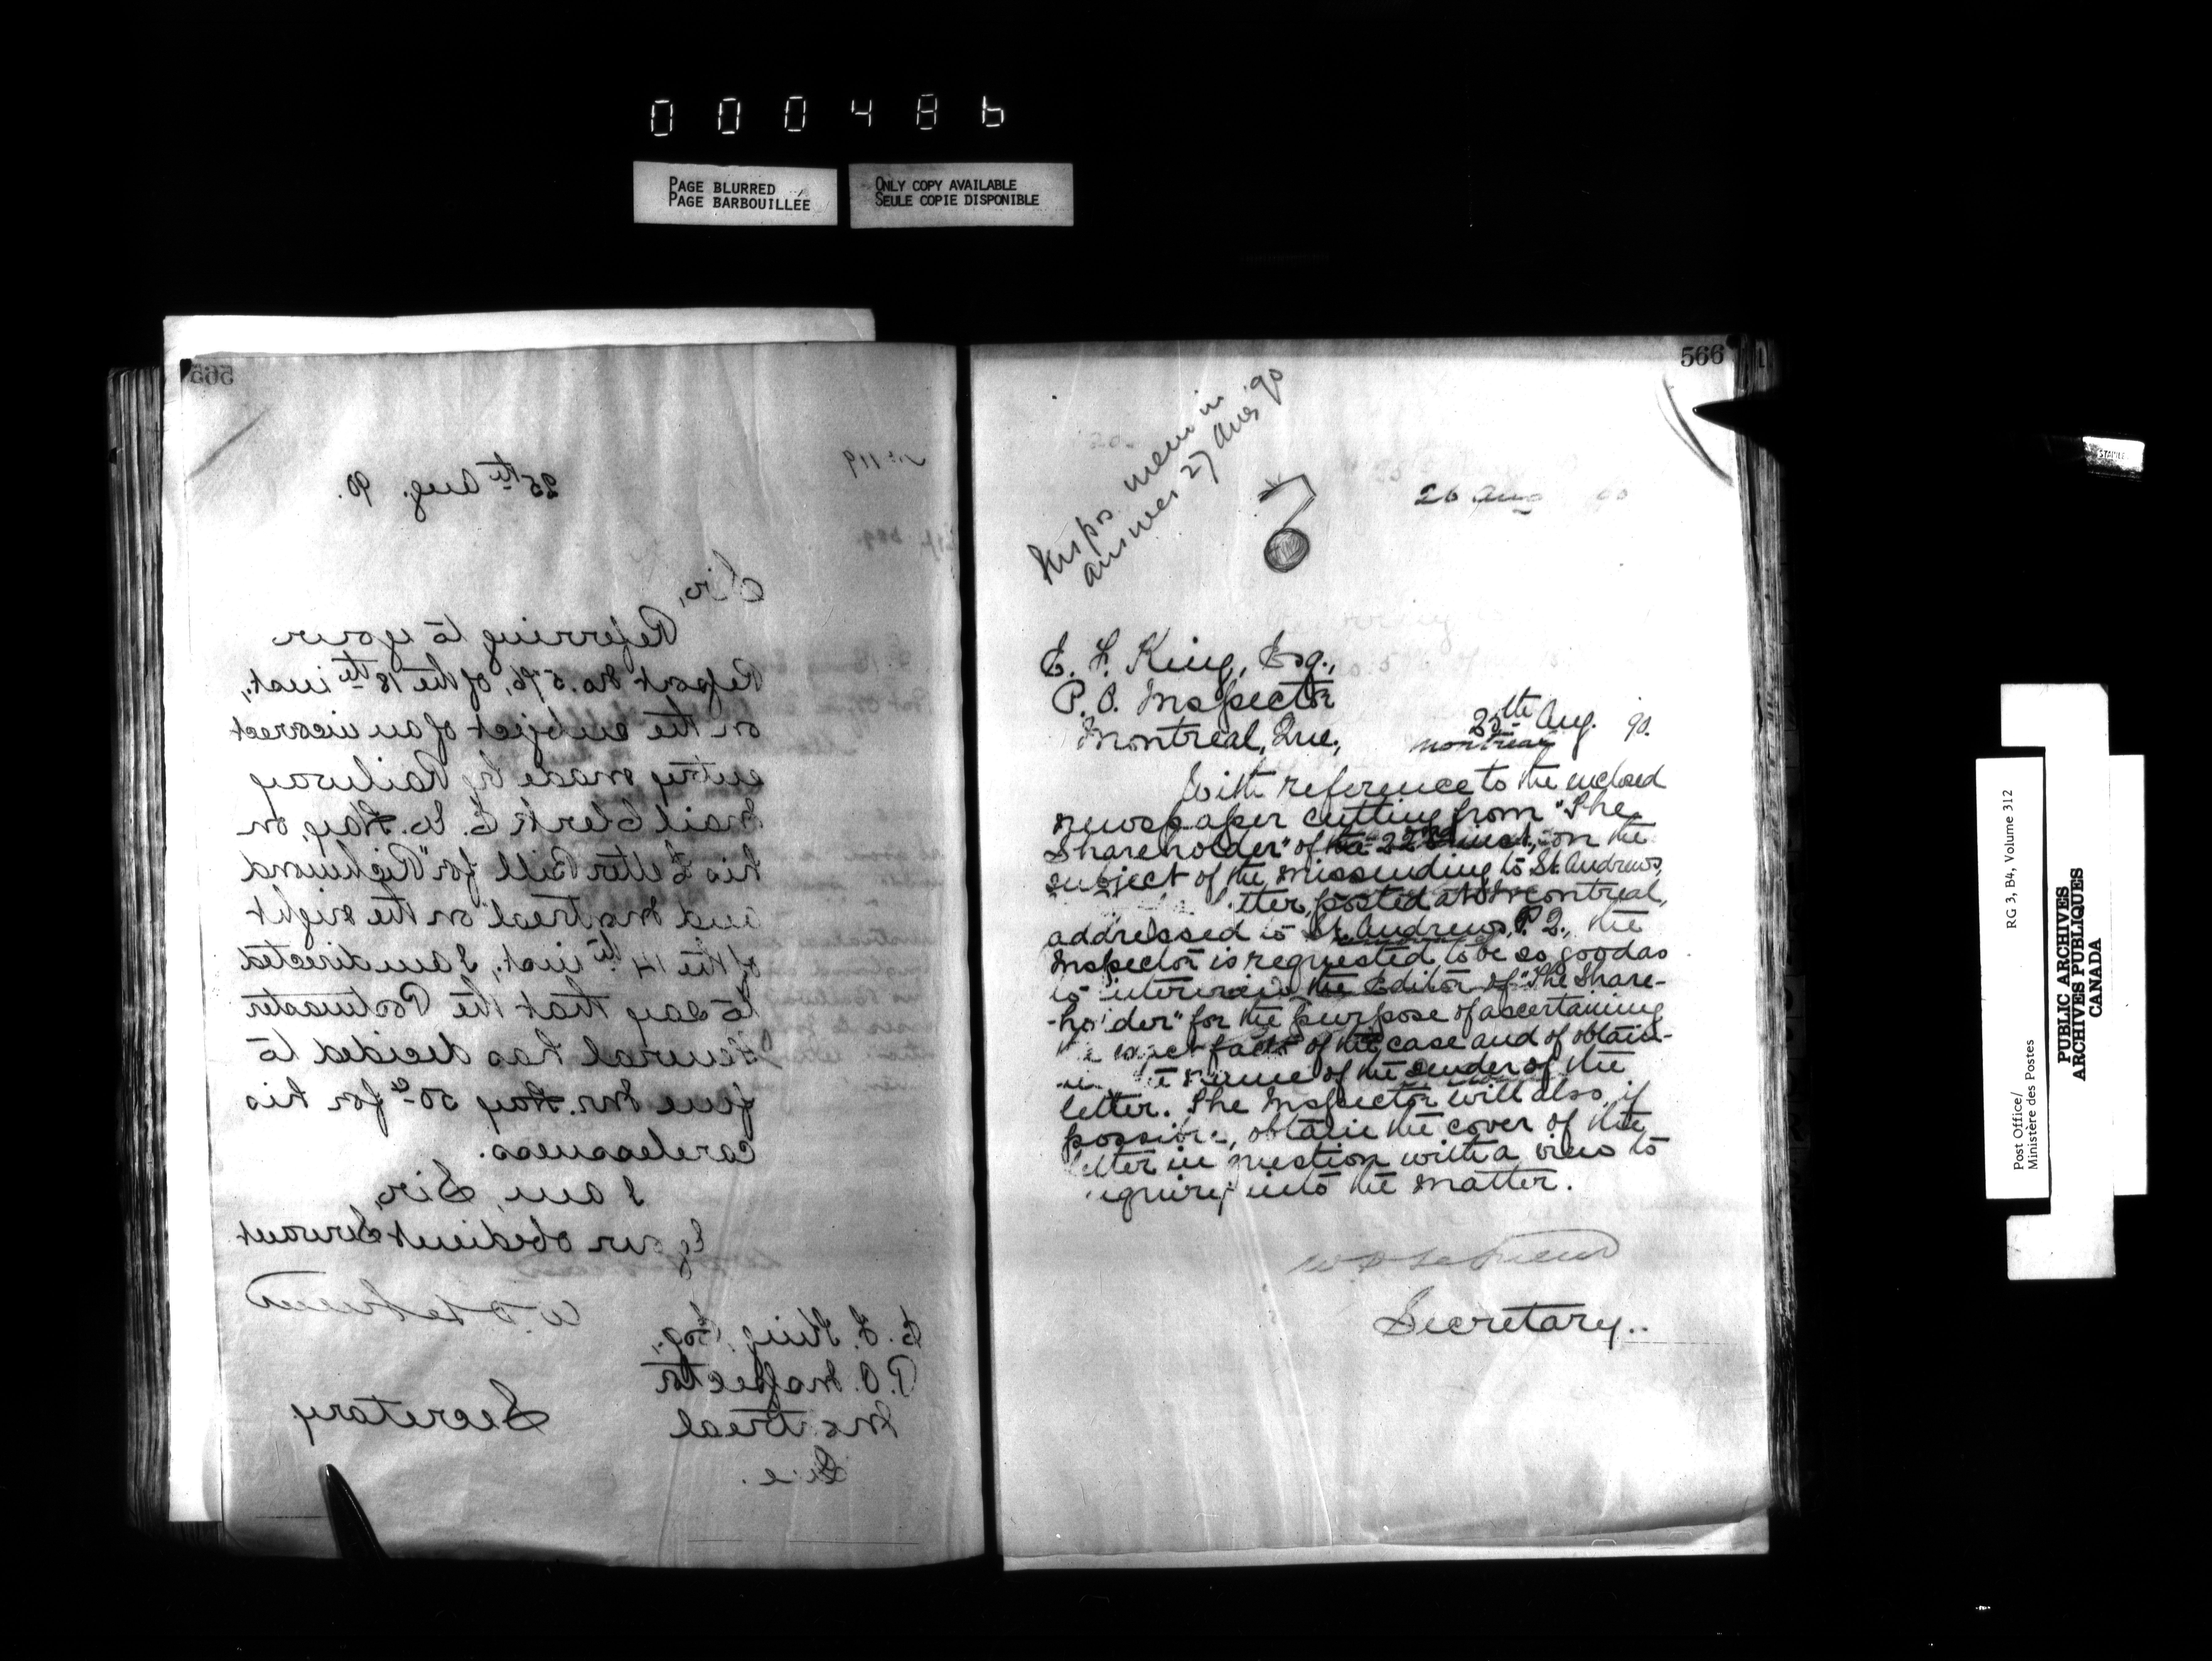 000486
PAGE BLURRED
PAGE BARBOUILLÉE
ONLY COPY AVAILABLE
SEULE COPIE DISPONIBLE
565
No 119
25th Aug. 90.
Sir,
Referring to your
Report No. 576, of the 18th inst.,
on the subject of an incorrect
entry made by Railway
Mail Clerk E. W. Hay, on
his Letter Bill for "Richmond
and Montreal" on the night
of the 14th inst., I am directed
to say that the Postmaster
General has decided to
fine Mr. Hay 50c for his
carelessness.
I am, Sir,
Your obedient Servant
Secretary
E. F. King, Esq.,
P.O. Inspector
Montreal
Que.
566
26 Aug 90
Insprs mem in
answer 27 Aug 90
E. F. King, Esq.,
P. O. Inspector
Montreal, Que.,
25th Aug. 90.
Montreal
With reference to the enclosed
newspaper cutting from "The
Shareholder" of the 22nd inst., on the
subject of the missending to St. Andrews,
letter, posted at Montreal,
addressed to St. Andrews, P. Q., the
Inspector is requested to be so good as
to interview the Editor of "The Share-
-holder" for the purpose of ascertaining
the exact facts of the case and of obtain-
name of the sender of the
letter. The Inspector will also, if
possible, obtain the cover of the
letter in question with a view to
inquiry into the matter.
Secretary.
Post Office/
Ministère des Postes
RG 3, B4, Volume 312
PUBLIC ARCHIVES
ARCHIVES PUBLIQUES
CANADA